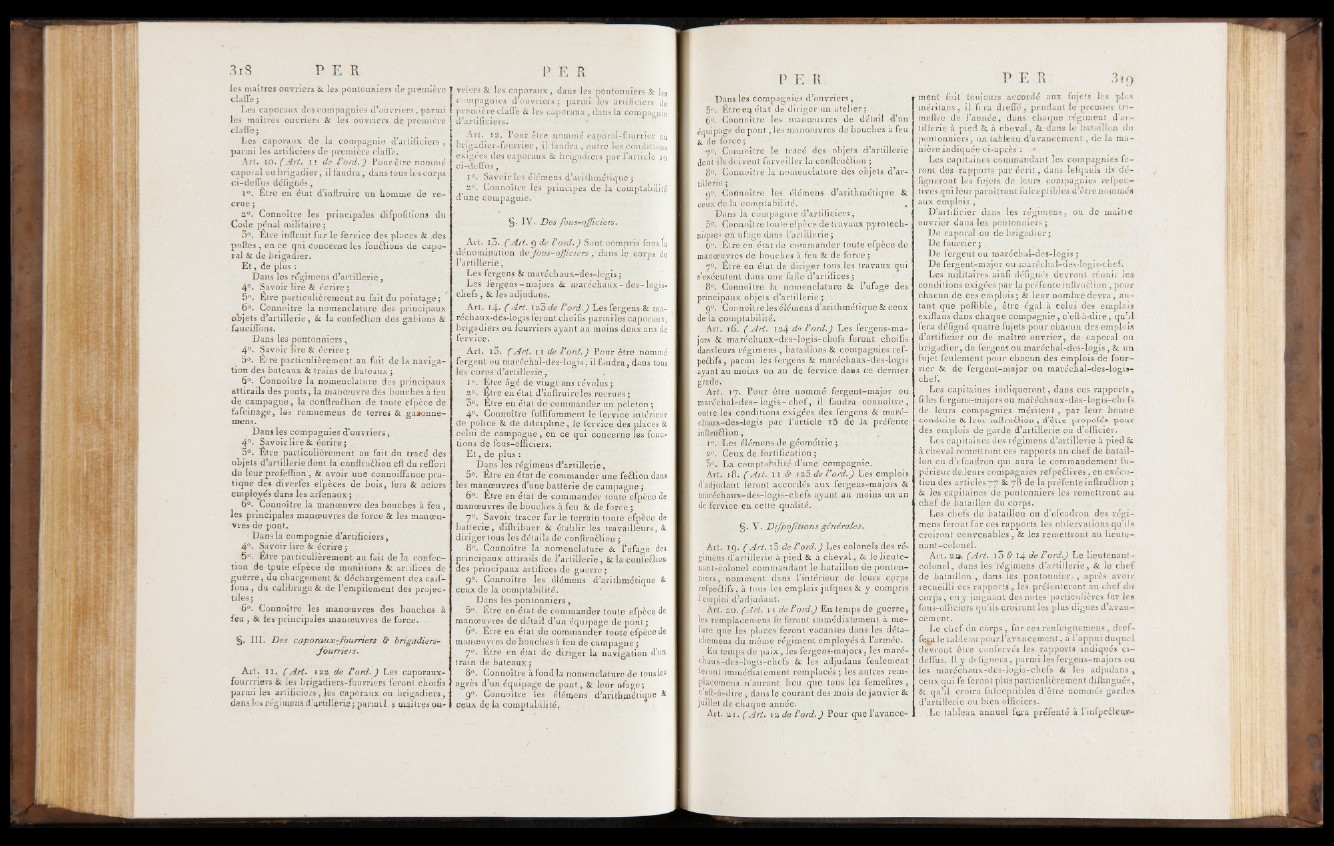 318 P E R
les maîtres ouvriers & les pontonniers de première
claffe ;
Les caporaux des compagnies d'ouvriers, parmi
les maîtres ouvriers & les ouvriers de première
claffe;
Les caporaux de la compagnie d'artificiers,
parmi les artificiers de première claffe.
Art. 10. (Art. 11 de l'ord.) Pour être nommé
caporal ou brigadier, il faudra, dans tous les corps
ci-deffus défignés,
1°. Être en état d'inftruire un homme de re-
crue ;
2°. Connoître les principales difpofitions du
Code pénal militaire ;
3°. Être inftruit fur le fervice des places & des
poftes, en ce qui concerne les fonctions de capo-
ral & de brigadier.
Et, de plus :
Dans les régimens d'artillerie,
4°. Savoir lire & écrire ;
5°. Être particulièrement au fait du pointage ;
6°. Connoître la nomenclature des principaux
objets d'artillerie, & la confection des gabions &
fauciffons.
Dans les pontonniers,
4°. Savoir lire & écrire ;
5°. Être particulièrement au fait de la naviga-
tion des bateaux & trains de bateaux ;
6°. Connoître la nomenclature des principaux
attirails des ponts, la manœuvre des bouches à feu
de campagne, la conftruction de toute efpèce de
fafcinage, les remuemens de terres & gazonne-
mens.
Dans les compagnies d'ouvriers,
4°. Savoir lire & écrire ;
5°. Être particulièrement au fait du tracé des
objets d'artillerie dont la conftruction eft du reffort
de leur profeffion, & avoir une connoiffance pra-
tique des diverfes efpèces de bois, fers & aciers
employés dans les arfenaux ;
6°. Connoître la manœuvre des bouches à feu,
les principales manœuvres de force & les manœu-
vres de pont.
Dans la compagnie d'artificiers,
4°. Savoir lire & écrire ;
5°. Être particulièrement au fait de la confec-
tion de toute efpèce de munitions & artifices de
guerre, du chargement & déchargement des caif-
fons, du calibrage & de l'empilement des projec-
tiles ;
6°. Connoître les manœuvres des bouches à
feu, & les principales manœuvres de force.
§. III. Des caporaux-fourriers & brigadiers-
fourriers.
Art. 11. (Art. 122 de l'ord.) Les caporaux-
fourriers & les brigadiers-fourriers feront choifis
parmi les artificiers, les caporaux ou brigadiers,
dans les régimens d'artillerie ; parmi les maîtres ou-
P E R
vriers & les caporaux, dans les pontonniers & les
compagnies d'ouvriers ; parmi les artificiers de
première claffe & les caporaux, dans la compagnie
d'artificiers.
Art. 12. Pour être nommé caporal-fourrier ou
brigadier-fourrier, il faudra, outre les conditions
exigées des caporaux & brigadiers par l'article 10
ci-deffus,
1°. Savoir les élémens d'arithmétique ;
2°. Connoître les principes de la comptabilité
d'une compagnie.
§. IV. Des fous-officiers.
Art. 13. (Art. 9 de l'ord.) Sont compris fous la
dénomination de fous-officiers, dans le corps de
l'artillerie,
Les fergens & maréchaux-des-logis ;
Les fergens-majors & maréchaux-des-logis-
chefs, & les adjudans.
Art. 14. (Art. 123 de l'ord.) Les fergens & ma-
réchaux-des-logis feront choifis parmi les caporaux,
brigadiers ou fourriers ayant au moins deux ans de
fervice.
Art. 15. (Art. 11 de l'ord.) Pour être nommé
fergent ou maréchal-des-logis, il faudra, dans tous
les corps d'artillerie,
1°. Être âgé de vingt ans révolus ;
2°. Être en état d'inftruire les recrues ;
3°. Être en état de commander un peleton ;
4°. Connoître fuffifamment le fervice intérieur
de police & de difcipline, le fervice des places &
celui de campagne, en ce qui concerne les fonc-
tions de fous-officiers.
Et, de plus :
Dans les régimens d'artillerie,
5°. Être en état de commander une fection dans
les manœuvres d'une batterie de campagne ;
6°. Être en état de commander toute efpèce de
manœuvres de bouches à feu & de force ;
7°. Savoir tracer fur le terrain toute efpèce de
batterie, diftribuer & établir les travailleurs, &
diriger tous les détails de conftruction ;
8°. Connoître la nomenclature & l'ufage des
principaux attirails de l'artillerie, & la confection
des principaux artifices de guerre ;
9°. Connoître les élémens d'arithmétique &
ceux de la comptabilité.
Dans les pontonniers,
5°. Être en état de commander toute efpèce de
manœuvres de détail d'un équipage de pont ;
6°. Être en état de commander toute efpèce de
manœuvres de bouches à feu de campagne ;
7°. Être en état de diriger la navigation d'un
train de bateaux ;
8°. Connoître à fond la nomenclature de tous les
agrès d'un équipage de pont, & leur ufage ;
9°. Connoître les élémens d'arithmétique &
ceux de la comptabilité.
P E R
Dans les compagnies d'ouvriers,
5°. Être en état de diriger un atelier ;
6°. Connoître les manœuvres de détail d'un
équipage de pont, les manœuvres de bouches à feu
& de force ;
7°. Connoître le tracé des objets d'artillerie
dont ils doivent furveiller la conftruction ;
8°. Connoître la nomenclature des objets d'ar-
tillerie ;
9°. Connoître les élémens d'arithmétique &
ceux de la comptabilité.
Dans la compagnie d'artificiers,
5°. Connoître toute efpèce de travaux pyrotech-
niques en ufage dans l'artillerie ;
6°. Être en état de commander toute efpèce de
manœuvres de bouches à feu & de force ;
7°. Être en état de diriger tous les travaux qui
s'exécutent dans une falle d'artifices ;
8°. Connoître la nomenclature & l'ufage des
principaux objets d'artillerie ;
9°. Connoître les élémens d'arithmétique & ceux
de la comptabilité.
Art. 16. (Art. 124 de l'ord.) Les fergens-ma-
jors & maréchaux-des-logis-chefs feront choifis
dans leurs régimens, bataillons & compagnies ref-
pectifs, parmi les fergens & maréchaux-des-logis
ayant au moins un an de fervice dans ce dernier
grade.
Art. 17. Pour être nommé fergent-major ou
maréchal-des-logis-chef, il faudra connoître,
outre les conditions exigées des fergens & maré-
chaux-des-logis par l'article 15 de la préfente
inftruction,
1°. Les élémens de géométrie ;
2°. Ceux de fortification ;
3°. La comptabilité d'une compagnie.
Art. 18. (Art. 11 & 125 de l'ord.) Les emplois
d'adjudant feront accordés aux fergens-majors &
maréchaux-des-logis-chefs ayant au moins un an
de fervice en cette qualité.
§. V. Difpofitions générales.
Art. 19. (Art. 15 de l'ord.) Les colonels des ré-
gimens d'artillerie à pied & à cheval, & le lieute-
nant-colonel commandant le bataillon de ponton-
niers, nomment dans l'intérieur de leurs corps
refpectifs, à tous les emplois jufques & y compris
l'emploi d'adjudant.
Art. 20. (Art. 11 de l'ord.) En temps de guerre,
les remplacemens fe feront immédiatement à me-
fure que les places feront vacantes dans les déta-
chemens du même régiment employés à l'armée.
En temps de paix, les fergens-majors, les maré-
chaux-des-logis-chefs & les adjudans feulement
feront immédiatement remplacés ; les autres rem-
placemens n'auront lieu que tous les femeftres,
c'eft-à-dire, dans le courant des mois de janvier &
juillet de chaque année.
Art. 21. (Art. 12 de l'ord.) Pour que l'avance-
P E R 319
ment foit toujours accordé aux fujets les plus
méritans, il fera dreffé, pendant le premier tri-
meftre de l'année, dans chaque régiment d'ar-
tillerie à pied & à cheval, & dans le bataillon du
pontonniers, un tableau d'avancement, de la ma-
nière indiquée ci-après :
Les capitaines commandant les compagnies fe-
ront des rapports par écrit, dans lefquels ils dé-
figneront les fujets de leurs compagnies refpec-
tives qui leur paroîtront fufceptibles d'être nommés
aux emplois,
D'artificier dans les régimens, ou de maître
ouvrier dans les pontonniers ;
De caporal ou de brigadier ;
De fourrier ;
De fergent ou maréchal-des-logis ;
De fergent-major ou maréchal-des-logis-chef.
Les militaires ainfi défignés devront réunir les
conditions exigées par la préfente inftruction, pour
chacun de ces emplois ; & leur nombre devra, au-
tant que poffible, être égal à celui des emplois
exiftans dans chaque compagnie, c'eft-à-dire, qu'il
fera défigné quatre fujets pour chacun des emplois
d'artificier ou de maître ouvrier, de caporal ou
brigadier, de fergent ou maréchal-des-logis, & un
fujet feulement pour chacun des emplois de four-
rier & de fergent-major ou maréchal-des-logis-
chef.
Les capitaines indiqueront, dans ces rapports,
fi les fergens-majors ou maréchaux-des-logis-chefs
de leurs compagnies méritent, par leur bonne
conduite & leur inftruction, d'être propofés pour
des emplois de garde d'artillerie ou d'officier.
Les capitaines des régimens d'artillerie à pied &
à cheval remettront ces rapports au chef de batail-
lon ou d'efcadron qui aura le commandement fu-
périeur de leurs compagnies refpectives, en exécu-
tion des articles 77 & 78 de la préfente inftruction ;
& les capitaines de pontonniers les remettront au
chef de bataillon du corps.
Les chefs de bataillon ou d'efcadron des régi-
mens feront fur ces rapports les obfervations qu'ils
croiront convenables, & les remettront au lieute-
nant-colonel.
Art. 22. (Art. 13 & 14 de l'ord.) Le lieutenant-
colonel, dans les régimens d'artillerie, & le chef
de bataillon, dans les pontonniers, après avoir
recueilli ces rapports, les préfenteront au chef du
corps, en y joignant des notes particulières fur les
fous-officiers qu'ils croiront les plus dignes d'avan-
cement.
Le chef du corps, fur ces renfeignemens, dref-
fera le tableau pour l'avancement, à l'appui duquel
devront être confervés les rapports indiqués ci-
deffus. Il y défignera, parmi les fergens-majors ou
les maréchaux-des-logis-chefs & les adjudans,
ceux qui fe feront plus particulièrement diftingués,
& qu'il croira fufceptibles d'être nommés gardes
d'artillerie ou bien officiers.
Le tableau annuel fera préfenté à l'infpecteur-